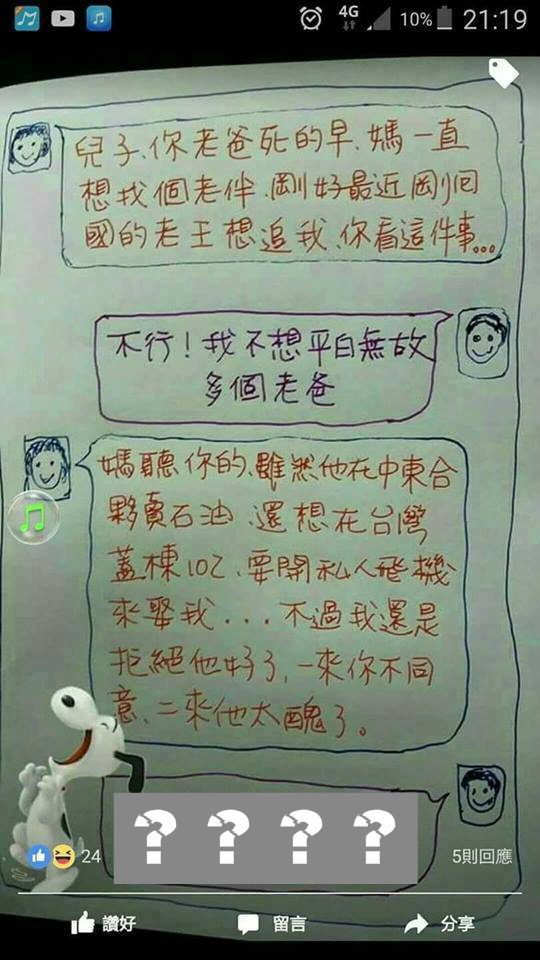 4G
10%
21:19
兒子、你老爸死的早、媽一直
想找個老伴、剛好最近剛回
國的老王想追我、你看這件事...
不行！我不想平白無故
多個老爸
媽聽你的、雖然他在中東合
夥賣石油、還想在台灣
蓋棟102、要開私人飛機
來娶我...不過我還是
拒絕他好了、一來你不同
意、二來他太醜了。
? ? ? ?
24
5則回應
讚好
留言
分享